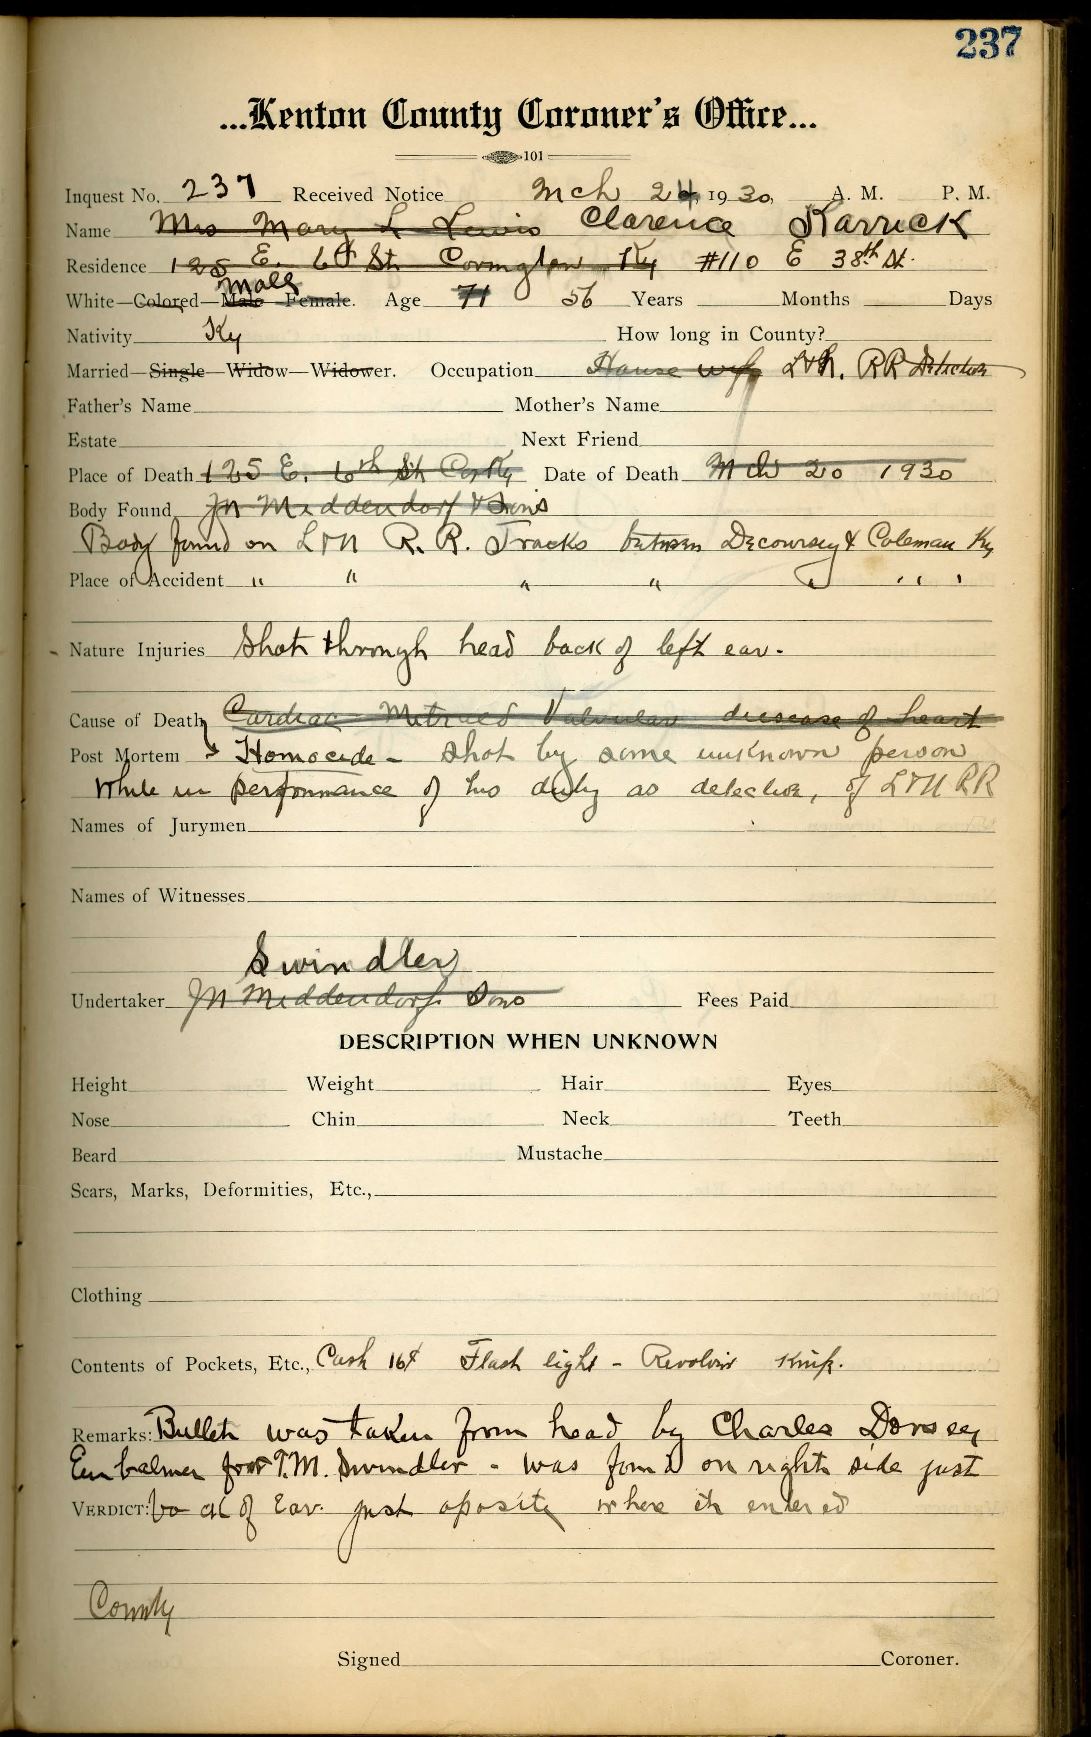 237
...Kenton County Coroner's Office...
101
Inquest No. 237 Received Notice Mch 24 1930, A. M. P. M.
Name Mrs Mary L Lewis Clarence Karrick
Residence 125 E. 6th St. Covington Ky #110 E 38th St.
male
White—Colored—Male Female. Age 71 56 Years Months Days
Nativity Ky How long in County?
Married—Single—Widow—Widower. Occupation House wife L&N. RR Detective
Father's Name Mother's Name
Estate Next Friend
Place of Death 125 E. 6th St Cov Ky Date of Death Mch 20 1930
Body Found JN Middendorf & Sons
Body found on L&N R. R. Tracks between Decoursey & Coleman Ky
Place of Accident " " " " " " "
Nature Injuries Shot through head back of left ear.
Cause of Death Cardiac Mitral Valvular disease of heart
Post Mortem Homocide - Shot by some unknown person
While in performance of his duty as detective, of L&N RR
Names of Jurymen
Names of Witnesses
Swindler
Undertaker JN Middendorf Sons Fees Paid
DESCRIPTION WHEN UNKNOWN
Height Weight Hair Eyes
Nose Chin Neck Teeth
Beard Mustache
Scars, Marks, Deformities, Etc.,
Clothing
Contents of Pockets, Etc., Cash 16¢ Flash light - Revolvir Knife.
Remarks: Bullet was taken from head by Charles Dorsey
Embalmer for T.M. Swindler - was found on right side just
VERDICT: back of Ear just oposite where it entered
County
Signed Coroner.